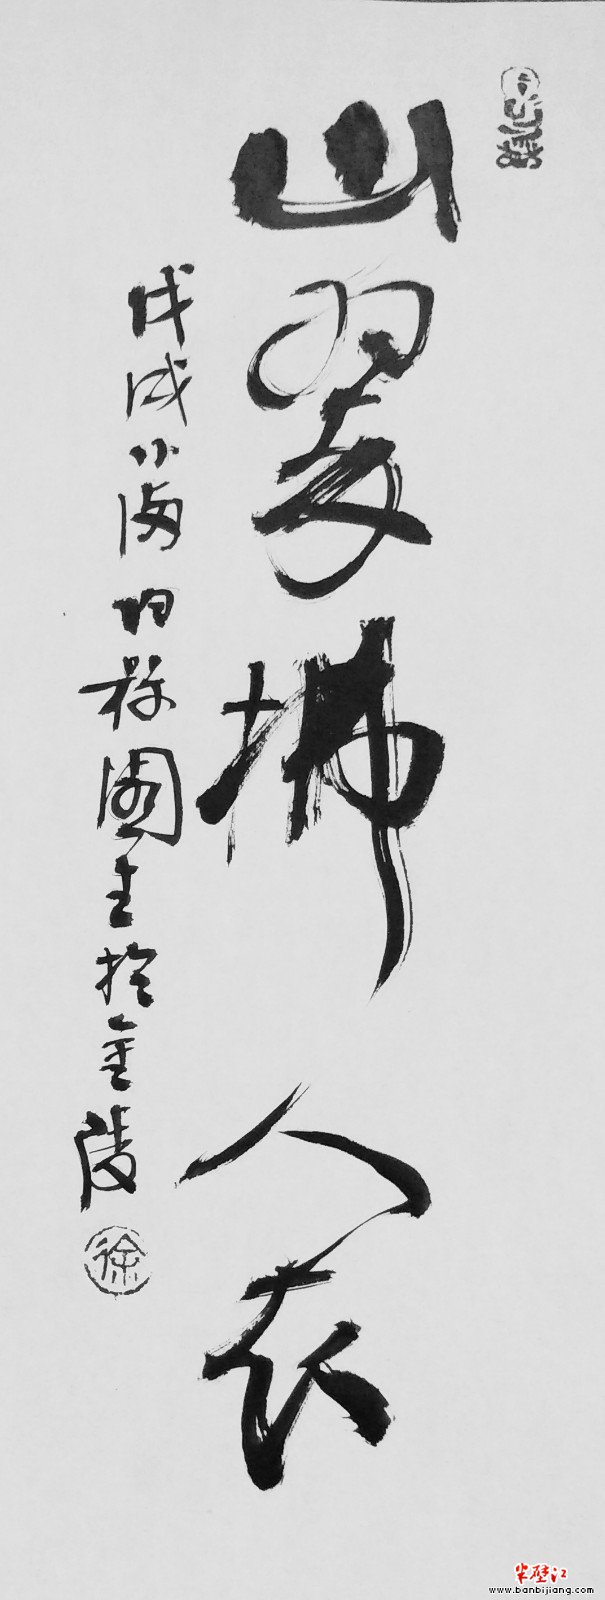 山翠拂人衣
戊戌小海羽稼園主於金陵
徐
半壁江
www.banbijiang.com